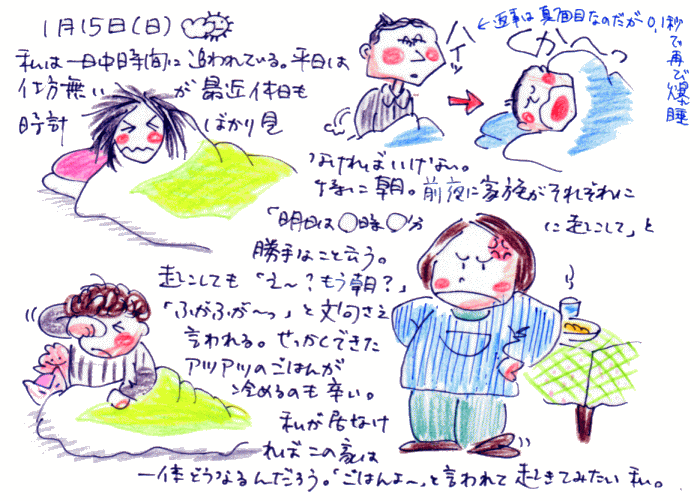 1月15日(日)
私は一日中時間に追われている。平日は
仕方無いが最近休日も
時計ばかり見
なければいけない。
特に朝。前夜に家族がそれぞれに
「明日は〇時〇分に起こして」と
勝手なこと云う。
起こしても「え〜?もう朝?」
「ふがふが〜っ」と文句さえ
言われる。せっかくできた
アツアツのごはんが
冷めるのも辛い。
私が居なけ
ればこの家は
一体どうなるんだろう。「ごはんよ〜」と言われて起きてみたい私。
ハイッ
←返事は真面目なのだが0.1秒で再び爆睡
くかへ〜っ